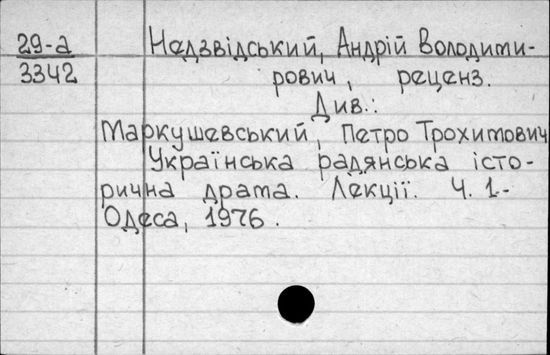 29-а
3342
Недзвідський, Андрій Володими-
рович, реценз.
Див.:
Маркушевський, Петро Трохимович
Українська радянська істо-
рична драма. Лекції. Ч. 1.-
Одеса, 1976.